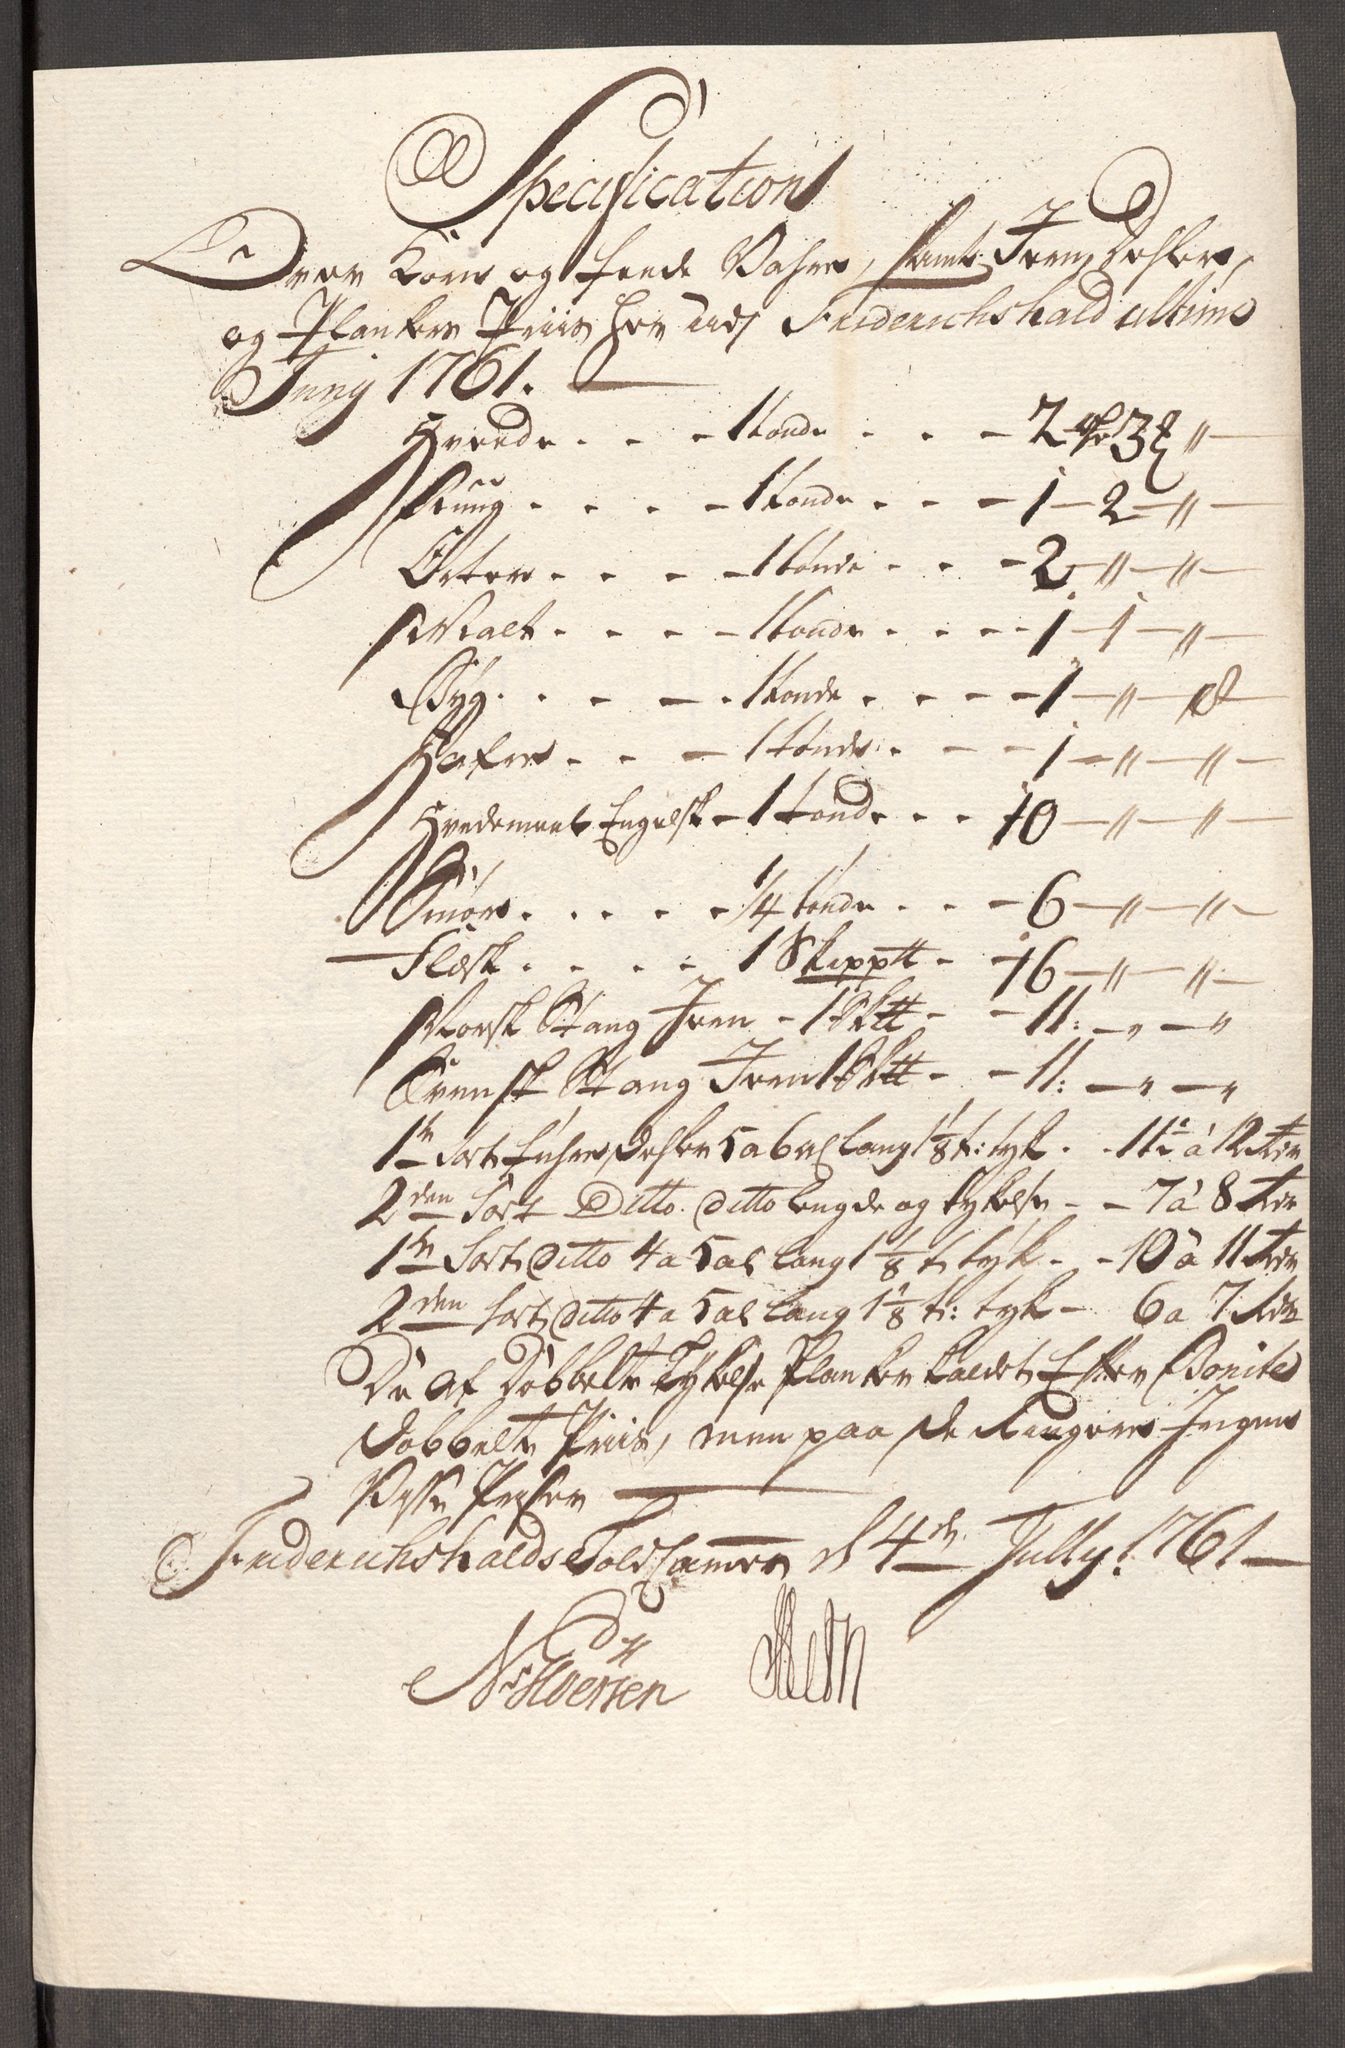 Specification
Over Korn og feede Vahre, samt Jern, Dehler,
og Planker Priis her ved Friderichshald ultimo
Junij 1761.
Hvede . . . 1 tønde . . . 2 rdr 3 ℥ "
Rüug . . . . 1 tønde . . . 1 — 2 — "
Erter . . . . 1 tønde . . . 2 — " — "
Malt . . . . 1 tønde . . . . 1 — 1 — "
Byg . . . . . 1 tønde . . . . 1 — " — 18
Hafre . . . 1 tønde . . . 1 — " — "
Hvedemeel Engelsk — 1 tønde . . . 10 — " — "
Smør . . . . . 1/4 tønde . . . 6 — " — "
Flæsk . . . . 1 Skipp℔ — 16 — " — "
Norsk Stang Jern — 1 Sk℔ — 11: — " — "
Svensk Stang Jern 1 Sk℔ — 11: — " — "
1te Sort Fuhre Dehler 5 a 6 al lang 1 1/8 t: tyk . . 11 à 12 rdr
2den Sort Ditto ditto lengde og tykelse — 7 à 8 rdr
1te Sort ditto 4 a 5 al lang 1 1/8 t. tyk — 10 à 11 rdr
2den Sort ditto 4 a 5 al lang 1 1/8 t: tyk — 6 a 7 rdr
De af Dobbelt Tykelse Planker kaldet Efter Bonite
dobbelt Priis, men paa de Ringere Ingen
visse Priser
Friderichshalds Told Cammer d 4de Jully 1761